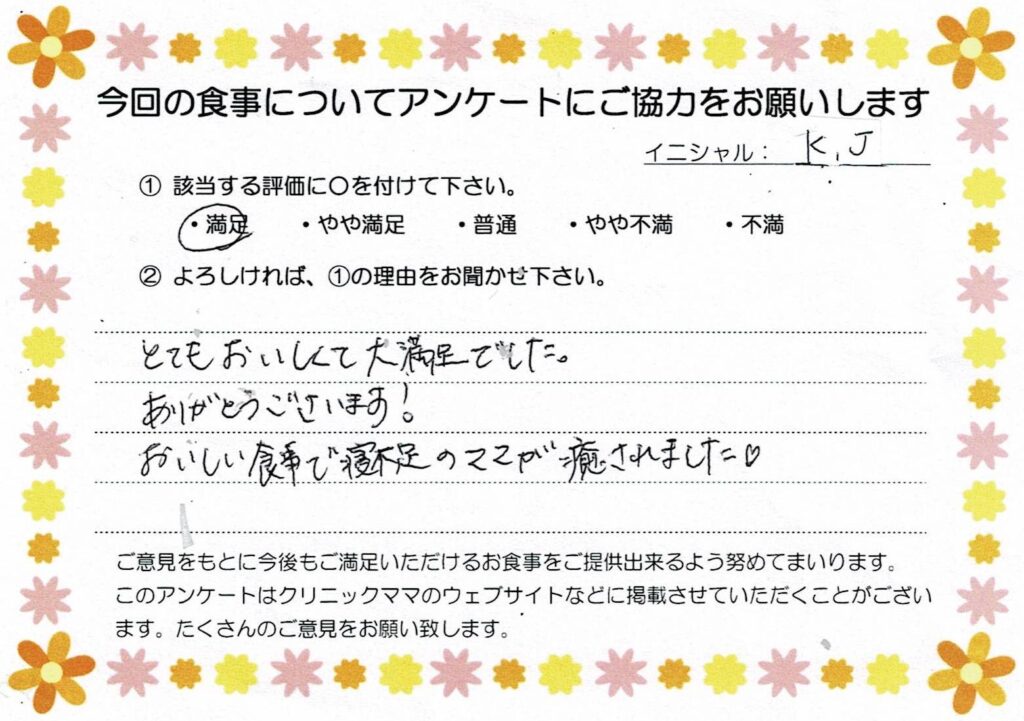 今回の食事についてアンケートにご協力をお願いします
イニシャル： K.J
① 該当する評価に〇を付けて下さい。
・満足 ・やや満足 ・普通 ・やや不満 ・不満
② よろしければ、①の理由をお聞かせ下さい。
とてもおいしくて大満足でした。
ありがとうございます！
おいしい食事で寝不足のママが癒されました♡
ご意見をもとに今後もご満足いただけるお食事をご提供出来るよう努めてまいります。
このアンケートはクリニックママのウェブサイトなどに掲載させていただくことがござい
ます。たくさんのご意見をお願い致します。